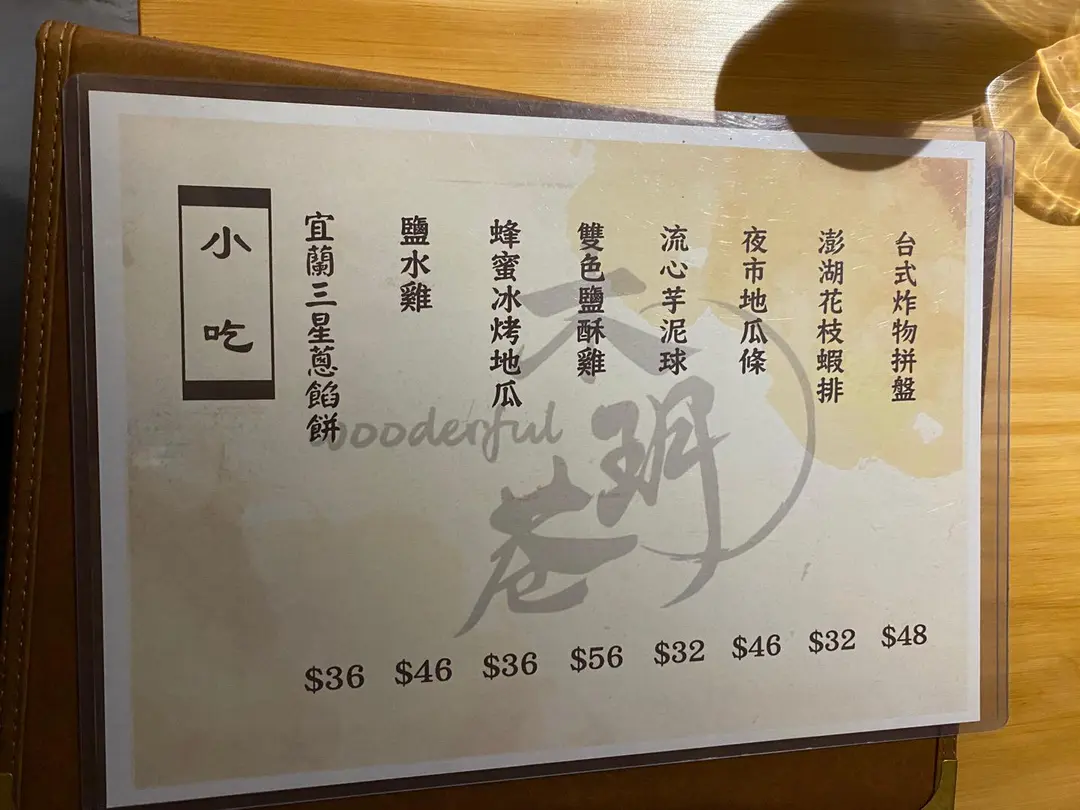 小吃
宜蘭三星蔥餡餅
$36
鹽水雞
$46
蜂蜜冰烤地瓜
$36
雙色鹽酥雞
$56
流心芋泥球
$32
夜市地瓜條
$46
澎湖花枝蝦排
$32
台式炸物拼盤
$48
wooderful
天玥巷